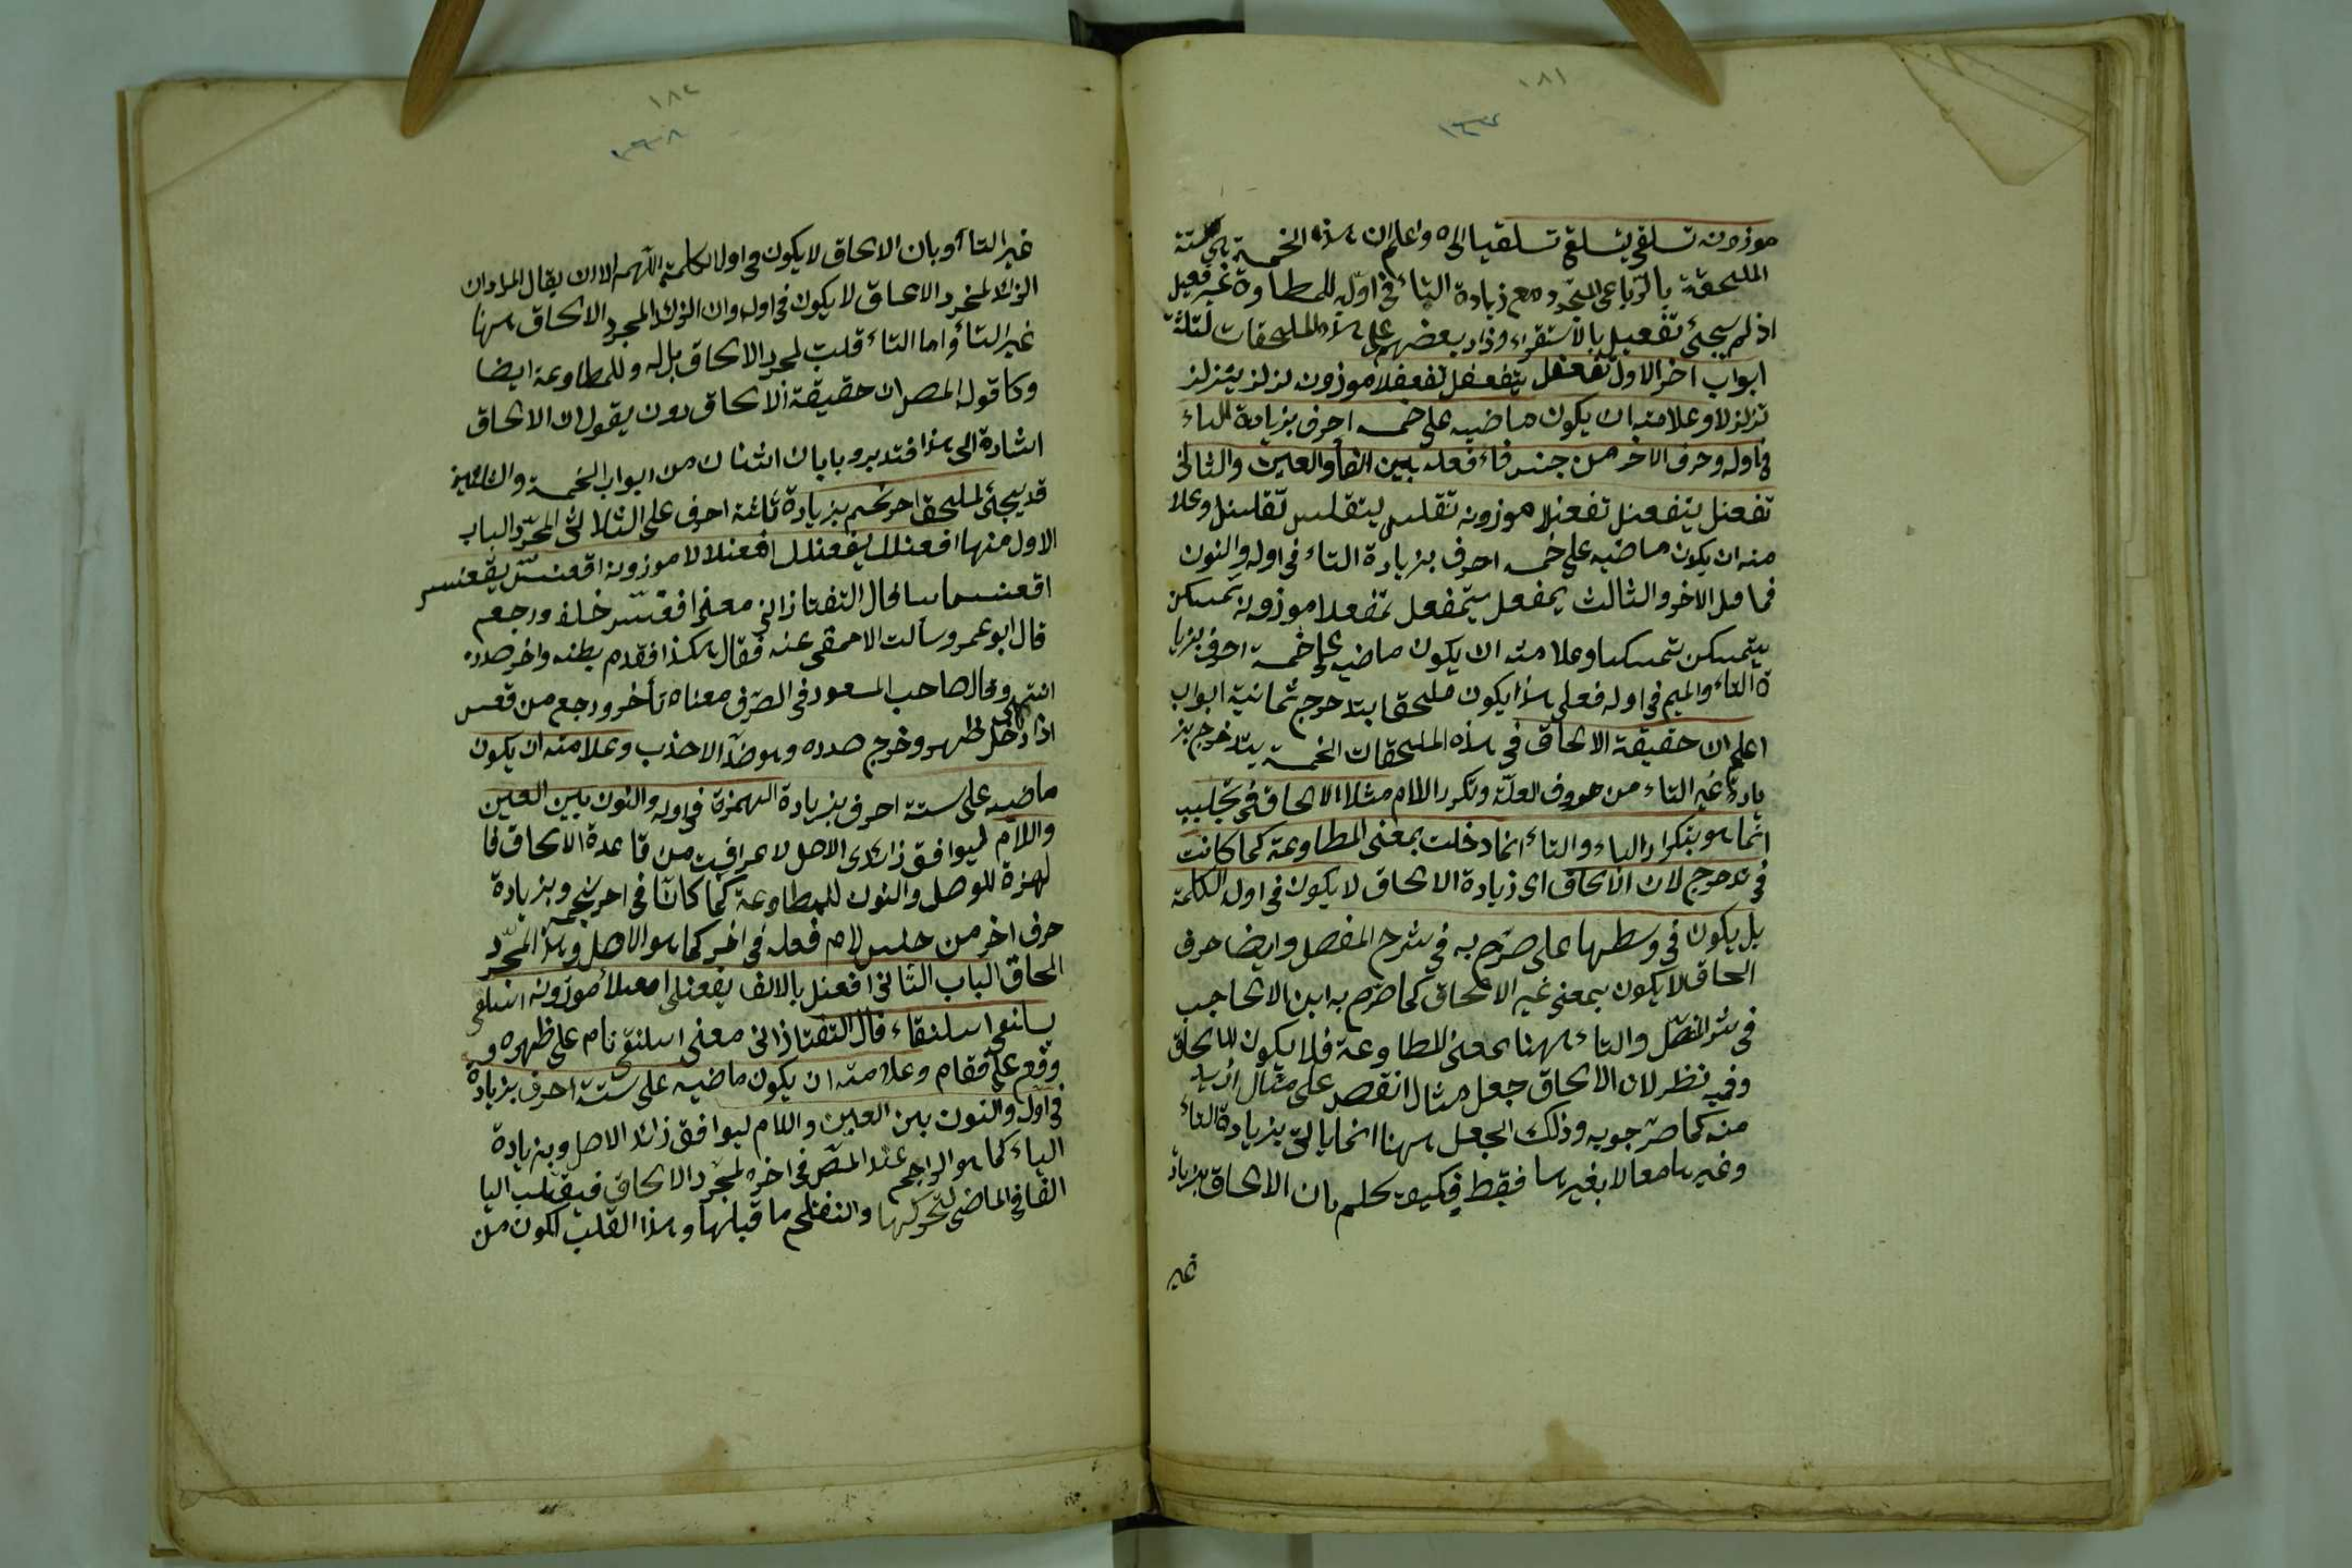 ١٨١
موزونه تسلقى يتسلقى تسلقيا الى ه واعلم ان هذه الخمسة هي الستة
الملحقة بالرباعى المجرد مع زيادة التاء فى اوله للمطاوعة غير فعيل
اذ لم يجئ تفعيل بالاستقراء وزاد بعضهم على هذه الملحقات ثلثة
ابواب اخر الاول تفعفل يتفعفل تفعفلا موزونه تزلزل يتزلزل
تزلزلا وعلامته ان يكون ماضيه على خمسة احرف بزيادة التاء
فى اوله وحرف الاخر من جنس فاء فعله بين الفاء والعين والثانى
تفعنل يتفعنل تفعنلا موزونه تقلنس يتقلنس تقلنسا وعلا
مته ان يكون ماضيه على خمسة احرف بزيادة التاء فى اوله والنون
فما قبل الاخر والثالث تمفعل يتمفعل تمفعلا موزونه تمسكن
يتمسكن تمسكنا وعلامته ان يكون ماضيه على خمسة احرف بزيا
دة التاء والميم فى اوله فعلى هذا يكون ملحقا بتدحرج ثمانية ابواب
اعلم ان حقيقة الالحاق فى هذه الملحقات الخمسة بتدحرج بز
يادة غير التاء من حروف العلة وتكرر اللام مثلا الالحاق فى تجلبب
انما هو بتكرار الباء والتاء انما دخلت بمعنى المطاوعة كما كانت
فى تدحرج لان الالحاق اى زيادة الالحاق لا يكون فى اول الكلمة
بل يكون فى وسطها على صرح به فى شرح المفصل وايضا حرف
الحاق لا يكون بمعنى غير الالحاق كما صرح به ابن الحاجب
فى شر المفصل والتاء ههنا بمعنى المطاوعة فلا يكون للالحاق
وفيه نظر لان الالحاق جعل مثال انقص على مثال ازيد
منه كما صرحوا به وذلك الجعل ههنا انما يأتى بزيادة التاء
وغيرها معا لا بغيرها فقط فكيف يحكم بان الالحاق بزيادة
غير
١٨٢
غير التاء او بان الالحاق لا يكون فى اول الكلمة اللهم الا ان يقال المراد ان
الزائد لمجرد الالحاق لا يكون فى اوله وان الزائد لمجرد الالحاق ههنا
غير التاء واما التاء فليت لمجرد الالحاق بل له وللمطاوعة ايضا
وكا قول المصر ان حقيقة الالحاق دون يقول ان الالحاق
اشارة الى هذا فتدبر وبابان اثنان من ابواب الخمسة والثلثين
قد يجئ لملحق احرنجم بزيادة ثلثة احرف على الثلاثى المجرد الباب
الاول منها افعنلل يفعنلل افعنلالا موزونه اقعنسس يقعنسس
اقعنساسا قال التفتازانى معنى اقعنسس خلف ورجع
قال ابو عمرو سألت الاصمعى عنه فقال هكذا فقدم بطنه واخر صدره
انتهى وقال صاحب المسعود فى الصرف معناه تأخر ورجع من قعس
اذا دخل ظهره وخرج صدره وهو ضد الاحدب وعلامته ان يكون
ماضيه على ستة احرف بزيادة الهمزة فى اوله والنون بين العين
واللام ليوافق زائدى الاصل لا عرافيت من قاعدة الالحاق فا
لهمزة للوصل والنون للمطاوعة كما كانا فى احرنجم وبزيادة
حرف اخر من جنس لام فعله فى اخره كما هو الاصل وهذا لمجرد
الحاق الباب الثانى افعنلى بالالف يفعنلى افعنلاء موزونه اسلنقى
يسلنقى اسلنقاء قال التفتازانى معنى اسلنقى نام على ظهره و
وقع على قفاه وعلامته ان يكون ماضيه على ستة احرف بزيادة
فى اوله والنون بين العين واللام ليوافق زائد الاصل وبزيادة
الياء كما هو الراجح عند المص فى اخره لمجرد الالحاق فيقلب اليا
الفا فى الماضى لتحركها وانفتاح ما قبلها وهذا القلب لكون من